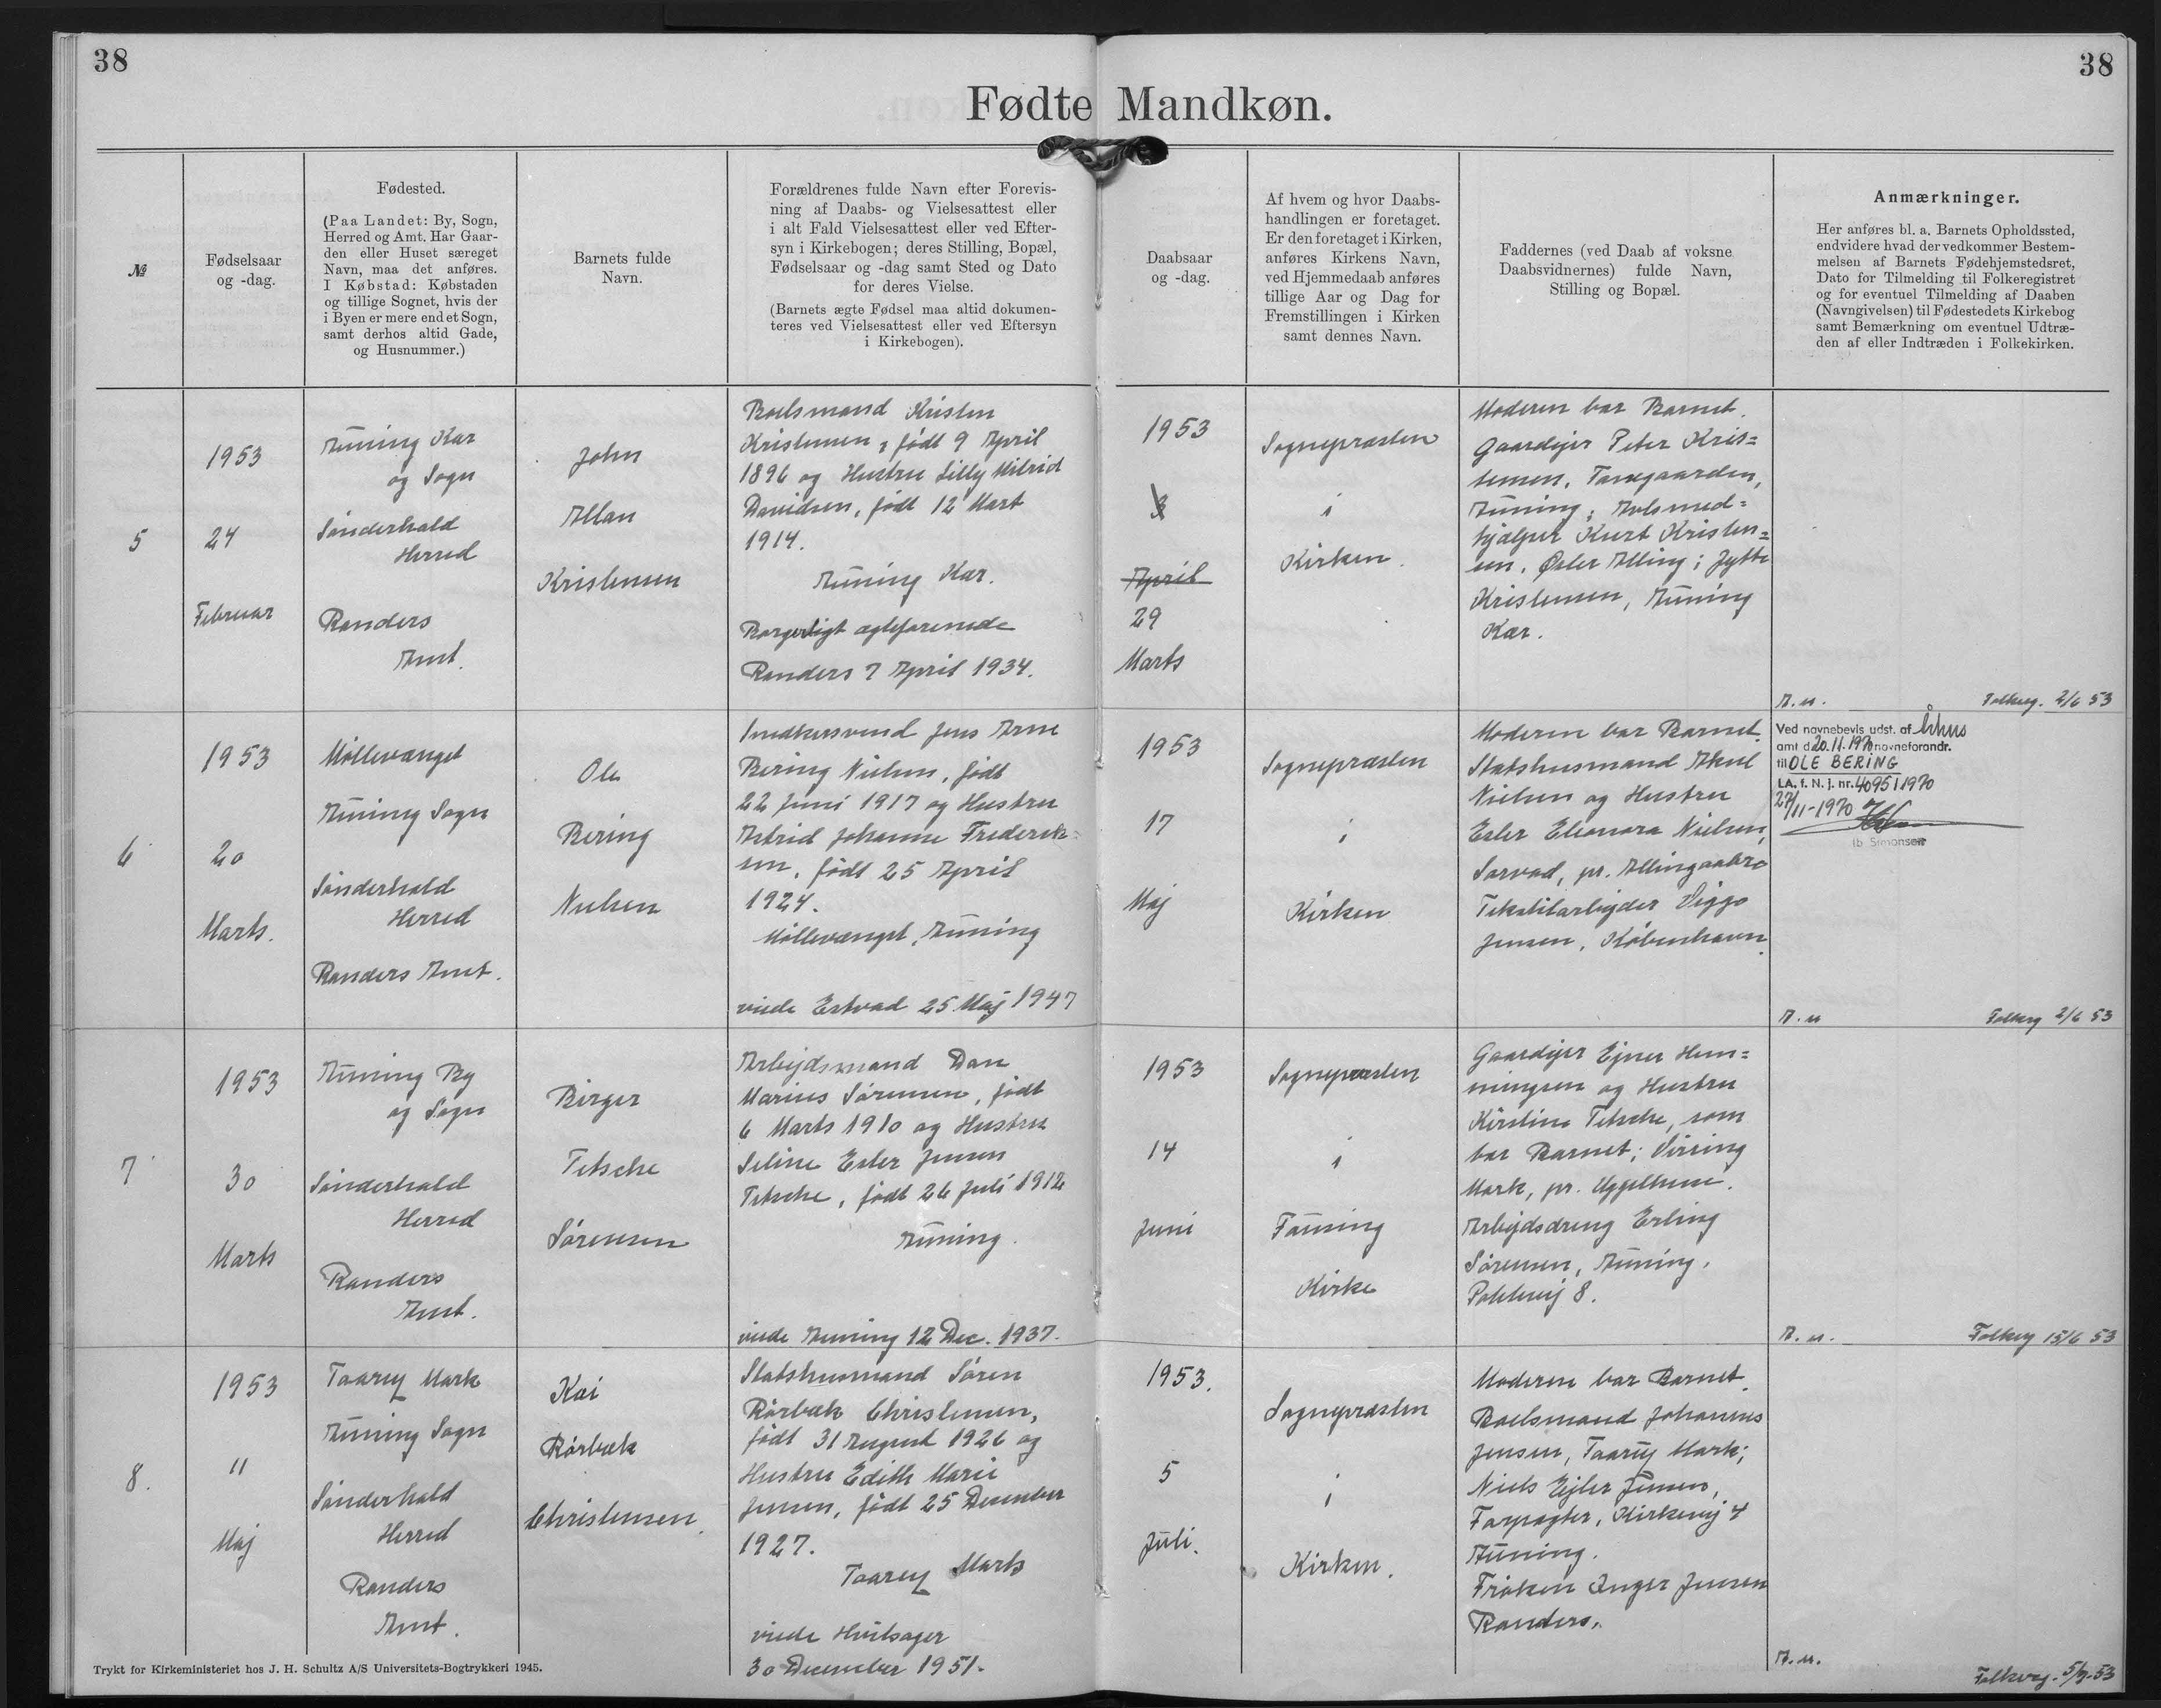 38
38
Fødte Mandkøn.
№
Fødselsaar
og -dag.
Fødested.
(Paa Landet: By, Sogn,
Herred og Amt. Har Gaar-
den eller Huset særeget
Navn, maa det anføres.
I Købstad: Købstaden
og tillige Sognet, hvis der
i Byen er mere end et Sogn,
samt derhos altid Gade,
og Husnummer.)
Barnets fulde
Navn.
Forældrenes fulde Navn efter Forevis-
ning af Daabs- og Vielsesattest eller
i alt Fald Vielsesattest eller ved Efter-
syn i Kirkebogen; deres Stilling, Bopæl,
Fødselsaar og -dag samt Sted og Dato
for deres Vielse.
(Barnets ægte Fødsel maa altid dokumen-
teres ved Vielsesattest eller ved Eftersyn
i Kirkebogen).
Daabsaar
og -dag.
Af hvem og hvor Daabs-
handlingen er foretaget.
Er den foretaget i Kirken,
anføres Kirkens Navn,
ved Hjemmedaab anføres
tillige Aar og Dag for
Fremstillingen i Kirken
samt dennes Navn.
Faddernes (ved Daab af voksne
Daabsvidnernes) fulde Navn,
Stilling og Bopæl.
Anmærkninger.
Her anføres bl. a. Barnets Opholdssted,
endvidere hvad der vedkommer Bestem-
melsen af Barnets Fødehjemstedsret,
Dato for Tilmelding til Folkeregistret
og for eventuel Tilmelding af Daaben
(Navngivelsen) til Fødestedets Kirkebog
samt Bemærkning om eventuel Udtræ-
den af eller Indtræden i Folkekirken.
5
1953
24
Februar
Auning Kær
og Sogn
Sønderhald
Herred
Randers
Amt.
John
Allan
Kristensen
Boelsmand Kristen
Kristensen, født 9 April
1896 og Hustru Lilly Milrid
Davidsen, født 12 Marts
1914.
Auning Kær.
Borgerligt ægteforenede
Randers 7 April 1934.
1953
3
April
29
Marts
Sognepræsten
i
Kirken.
Moderen bar Barnet.
Gaardejer Peter Kris=
tensen,
Auning; Avlsmed=
hjælper Kurt Kristen=
sen, Øster Alling; Jytte
Kristensen, Auning
Kær.
A. u.
Folkereg. 2/6 53
6
1953
20
Marts.
Møllevænget
Auning Sogn
Sønderhald
Herred
Randers Amt.
Ole
Bering
Nielsen
Snedkersvend Jens Arne
Bering Nielsen, født
22 Juni 1917 og Hustru
Astrid Johanne Frederik-
sen, født 25 April
1924.
Møllevænget, Auning
viede Estvad 25. Maj 1947
1953
17
Maj
Sognepræsten
i
Kirken
Moderen bar Barnet.
Statshusmand Aksel
Nielsen og Hustru
Ester Eleonora Nielsen,
Sorvad, pr. Allingaabro
Tekstilarbejder Viggo
Jensen, København.
Ved navnebevis udst. af Århus
amt d. 20.11.1970 navneforandr.
til OLE BERING
LA. f. N. j. nr. 4095/1970
27/11-1970
Ib Simonsen
A. u
Folkereg 2/6 53
7
1953
30
Marts
Auning By
og Sogn
Sønderhald
Herred
Randers
Amt.
Birger
Tetsche
Sørensen
Arbejdsmand Dan
Marius Sørensen, født
6 Marts 1910 og Hustru
Seline Ester Jensen
Tetsche, født 26 Juli 1912
Auning.
viede Auning 12 Dec. 1937.
1953
14
Juni
Sognepræsten
i
Fausing
Kirke
Gaardejer Ejner Hen=
ningsen og Hustru
Kirstine Tetsche, som
bar Barnet; Virring
Mark, pr. Uggelhuse.
Arbejdsdreng Erling
Sørensen, Auning,
8.
A. u.
Folkereg 15/6 53
8.
1953
11
Maj
Taarup Mark
Auning Sogn
Sønderhald
Herred
Randers
Amt.
Kai
Rørbæk
Christensen.
Statshusmand Søren
Rørbæk Christensen,
født 31 August 1926 og
Hustru Edith Marie
Jensen, født 25 December
1927.
Taarup Mark
viede Hvilsager
30 December 1951.
1953.
5
Juli.
Sognepræsten
i
Kirken.
Moderen bar Barnet.
Boelsmand Johannes
Jensen, Taarup Mark;
Niels Ejler Jensen,
Forpagter, Kirkevej 4
Auning.
Frøken Inger Jensen
Randers.
A. u.
Folkereg. 5/7-53
Trykt for Kirkeministeriet hos J. H. Schultz A/S Universitets-Bogtrykkeri 1945.